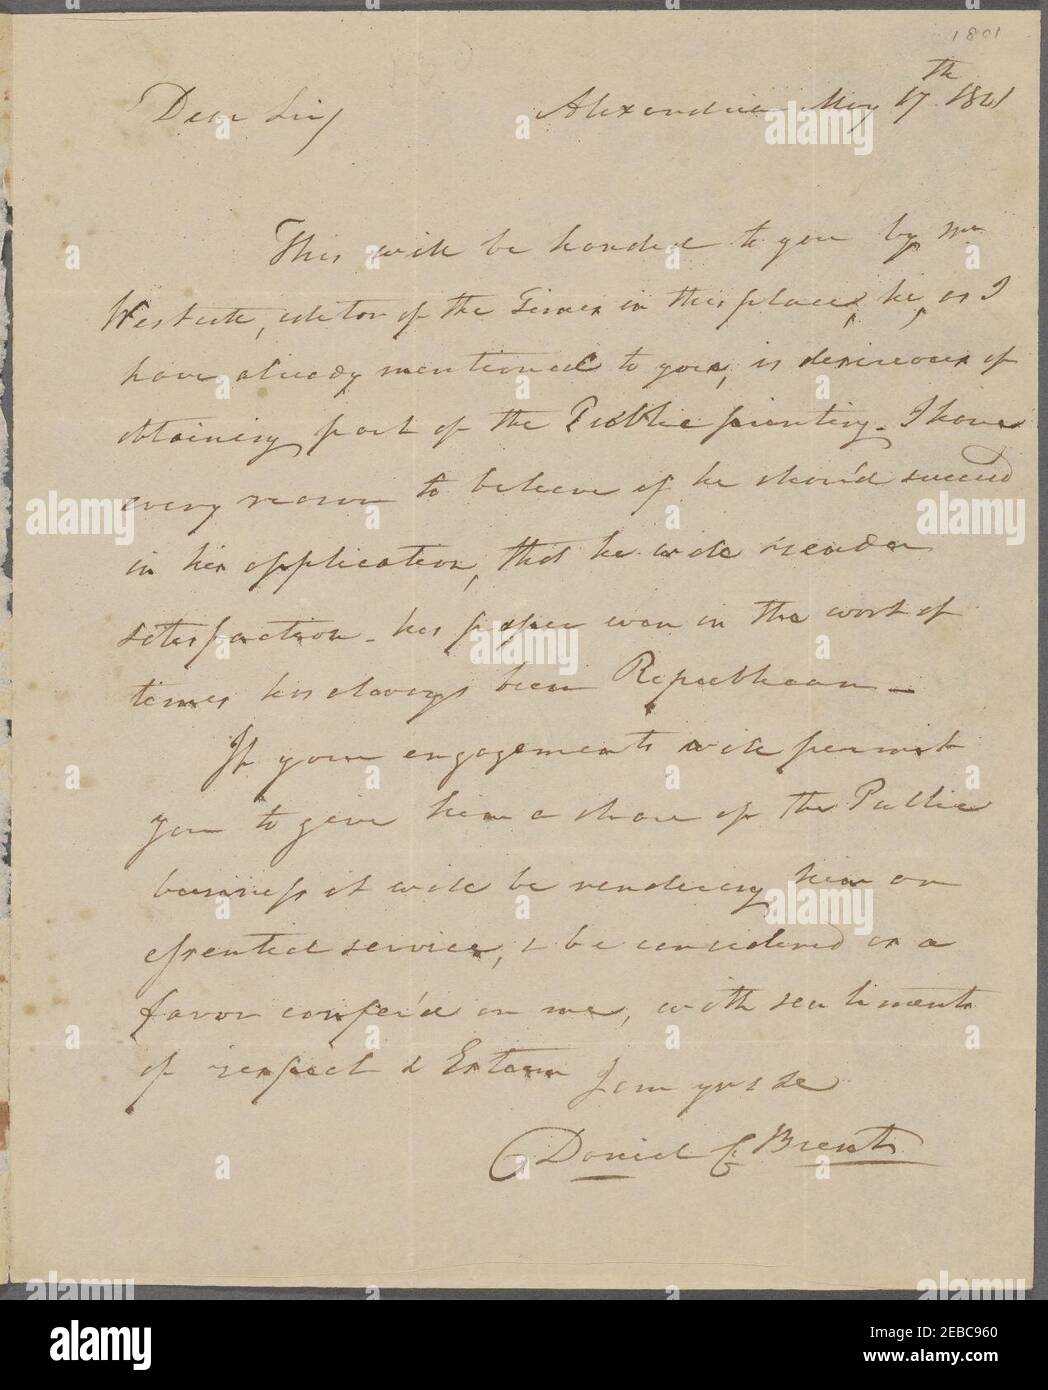 1801
Dear Sir,
Alexandria May 17th 1801
This will be handed to you by Mr
Westcott, editor of the Times in this place, he, as I
have already mentioned to you, is desireous of
obtaining part of the Public printing - I have
every reason to believe if he should succeed
in his application, that he will render
satisfaction - his paper even in the worst of
times has always been Republican -
If your engagements will permit
you to give him a share of the Public
business it will be rendering him an
essential service, & be considered as a
favor confer'd on me, with sentiments
of respect & Esteem I am yrs &c
Daniel C Brent
alamy
Image ID: 2EBC960
www.alamy.com